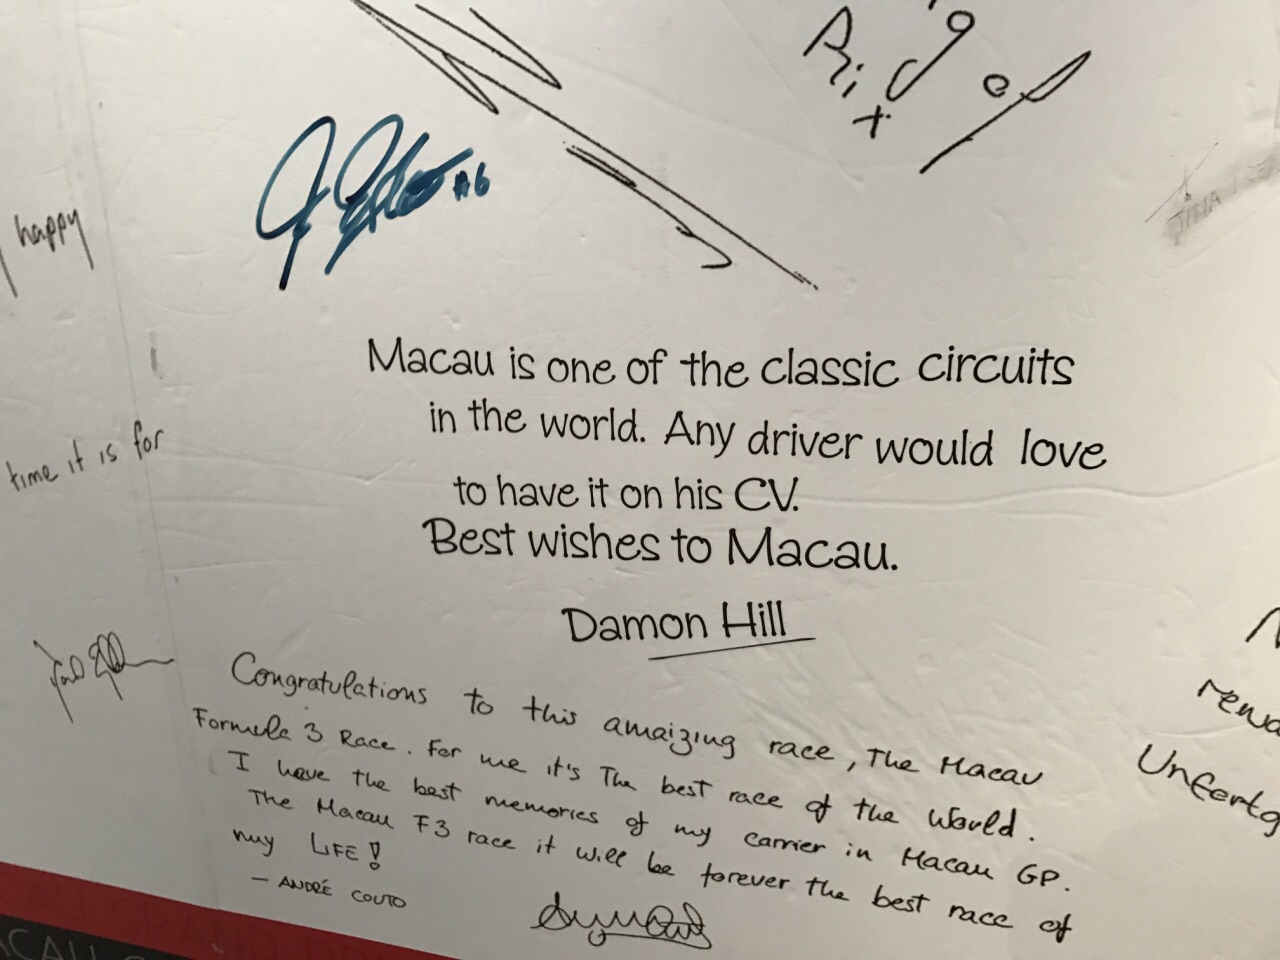 #6
happy
time it is for
Macau is one of the classic circuits
in the world. Any driver would love
to have it on his CV.
Best wishes to Macau.
Damon Hill
Congratulations to this amaizing race, The Macau
Formula 3 Race. For me it's The best race of the World.
I have the best memories of my carrier in Macau GP.
The Macau F3 race it will be forever the best race of
my LIFE!
- ANDRÉ COUTO